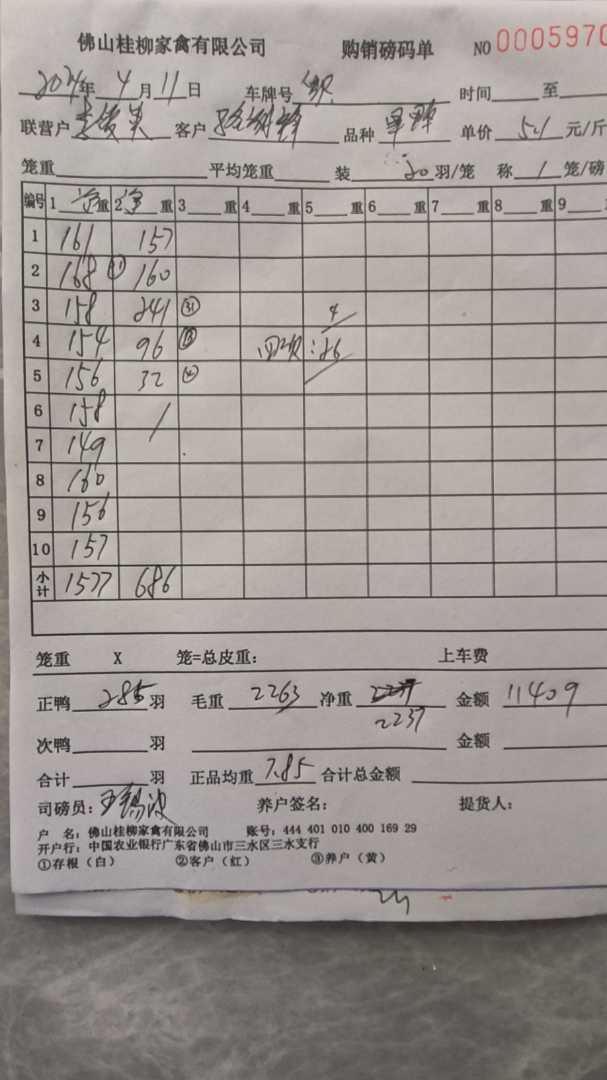 佛山桂柳家禽有限公司 购销磅码单 NO 0005970
2024年 4月 11日 车牌号 时间 至
联营户 客户 品种 单价 5.1 元/斤
笼重 平均笼重 装 20 羽/笼 称 1 笼/磅
编号 1 净 重 2 净 重 3 重 4 重 5 重 6 重 7 重 8 重 9
1 161 157
2 168 160
3 158 241 31 4
4 154 96 13 回以:26
5 156 32
6 158 /
7 149
8 160
9 156
10 157
小计 1577 686
笼重 X 笼=总皮重: 上车费
正鸭 285 羽 毛重 2263 净重 2237 金额 11409
次鸭 羽 金额
合计 羽 正品均重 7.85 合计总金额
司磅员: 养户签名: 提货人:
户 名: 佛山桂柳家禽有限公司 账号: 444 401 010 400 169 29
开户行: 中国农业银行广东省佛山市三水区三水支行
①存根(白) ②客户(红) ③养户(黄)